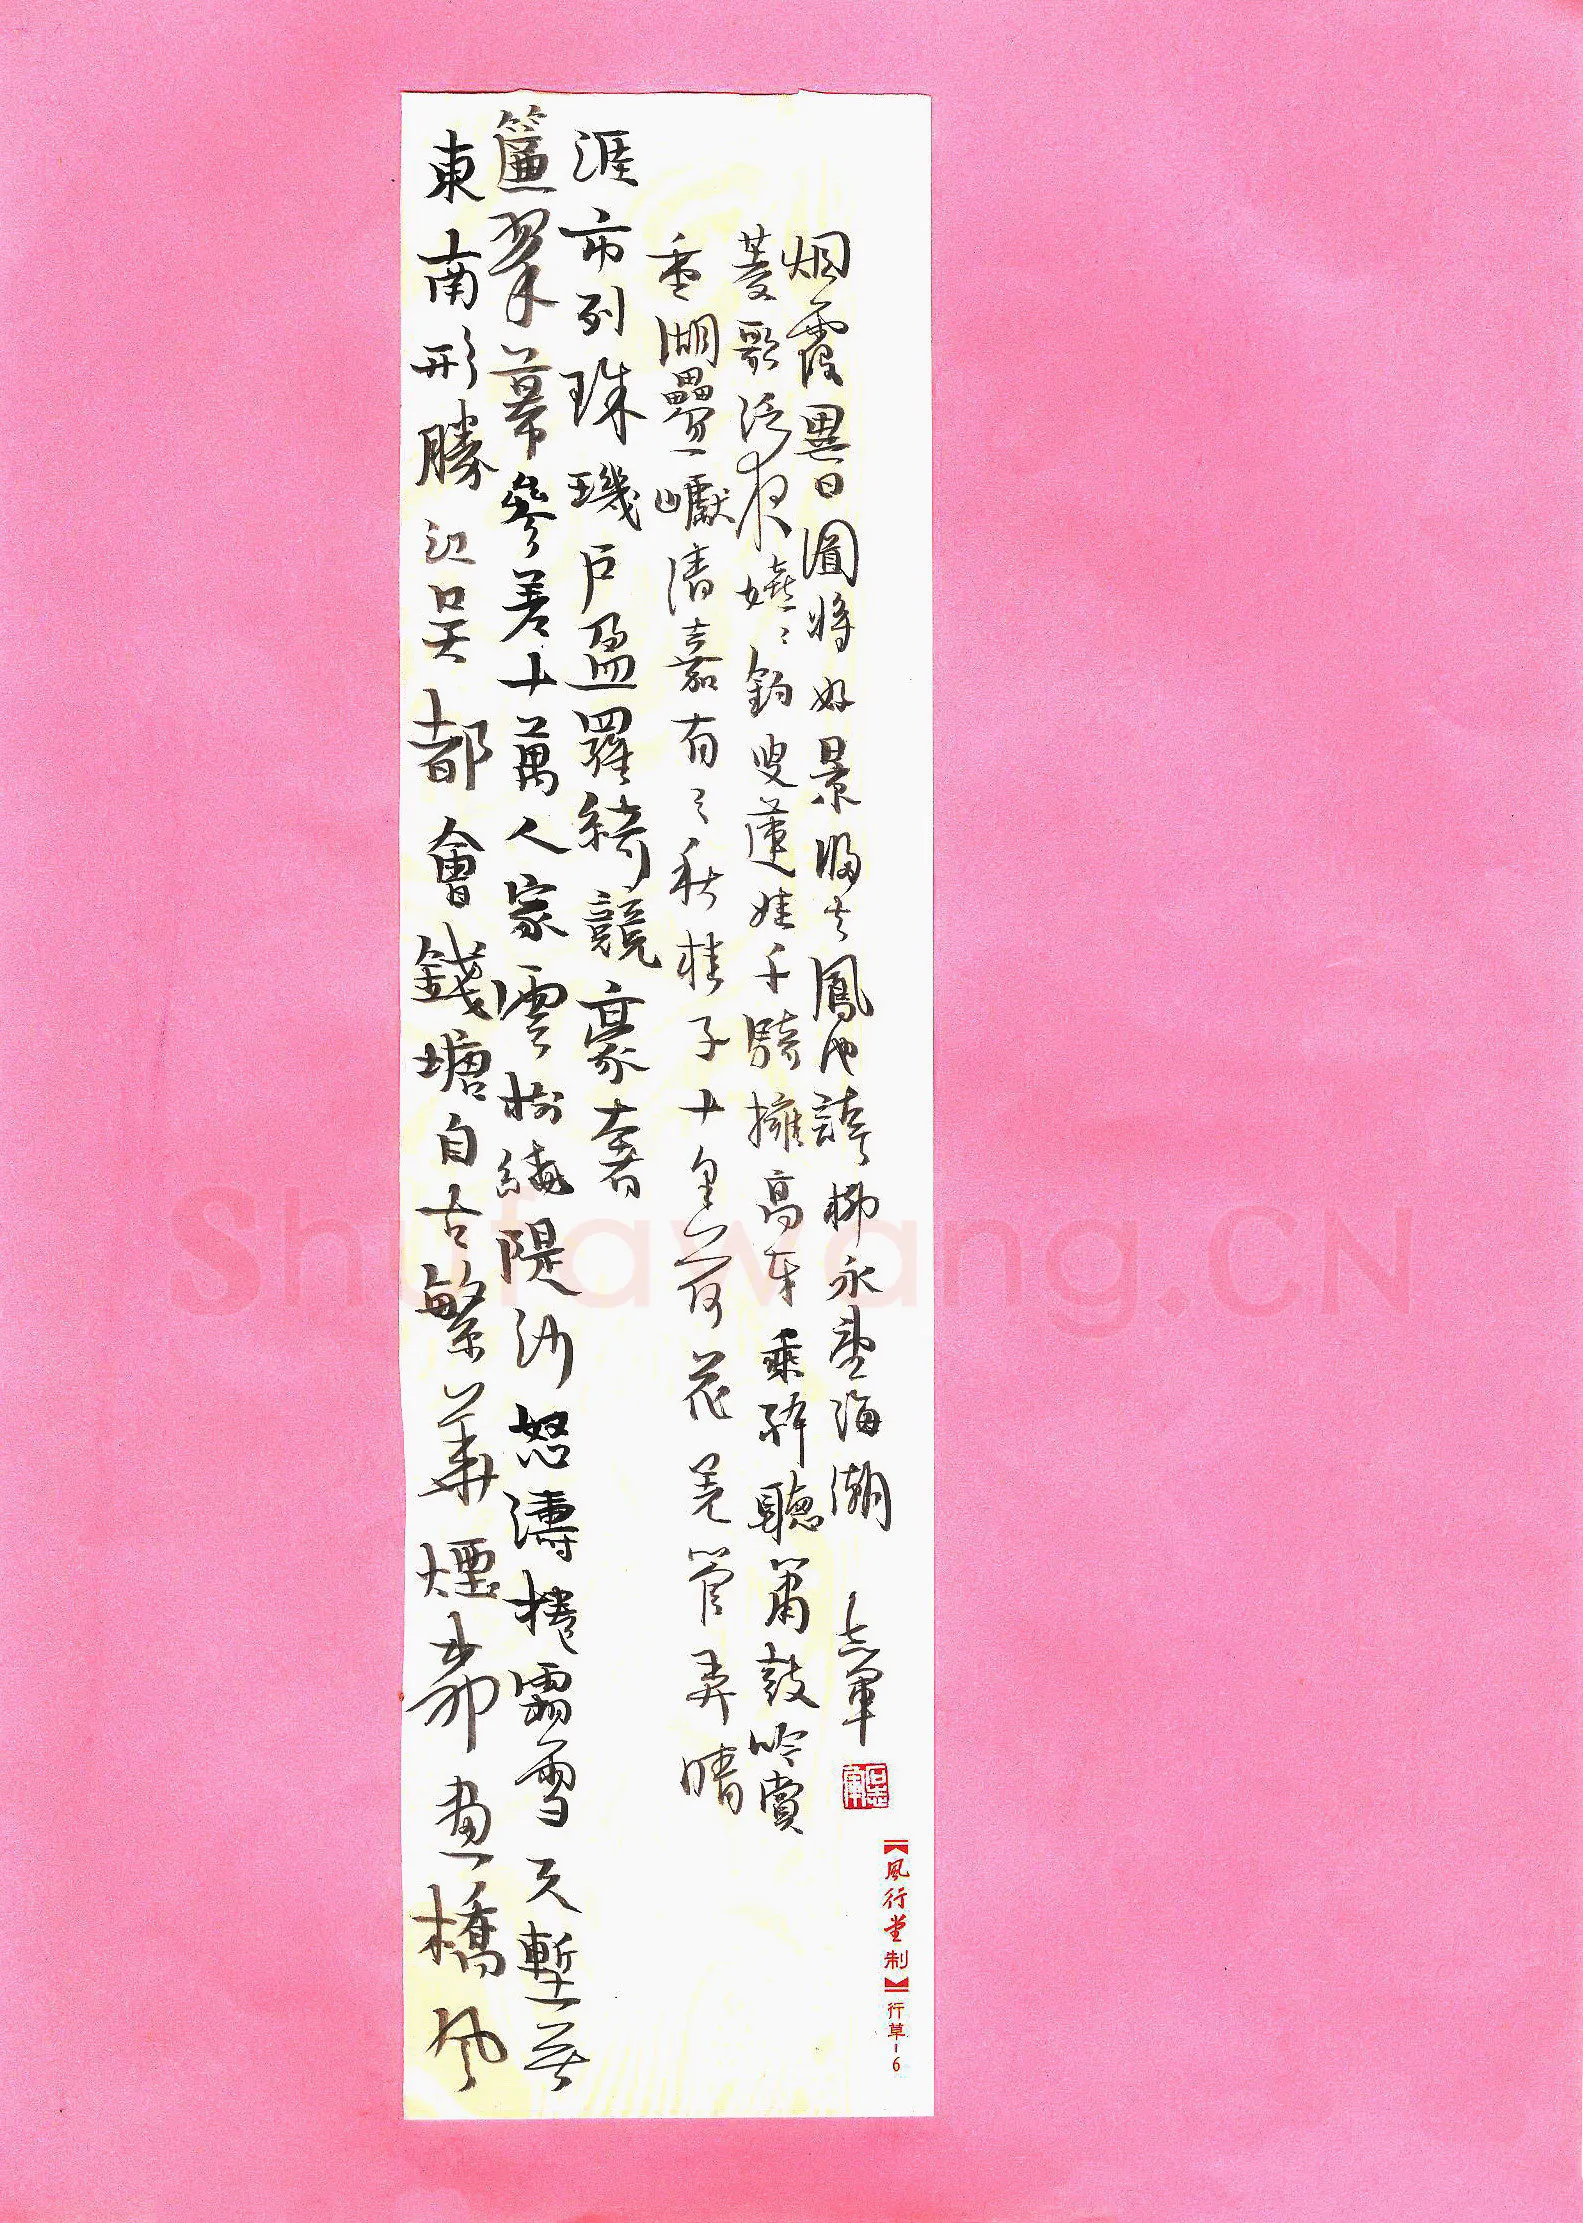 東南形勝江吳都會錢塘自古繁華煙柳畫橋風
簾翠幕參差十萬人家雲樹繞隄沙怒濤捲霜雪天塹無
涯市列珠璣戶盈羅綺競豪奢
重湖疊巘清嘉有三秋桂子十里荷花羌管弄晴
菱歌泛夜嬉々釣叟蓮娃千騎擁高牙乘醉聽簫鼓吟賞
烟霞異日圖將好景歸去鳳池誇柳永望海潮 志軍
【風行堂制】行草-6
Shufawang.CN